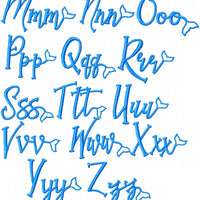 Mmm Nnn Ooo
Ppp Qqq Rrr
Sss Ttt Uuu
Vvv Www Xxx
Yyy Zzz